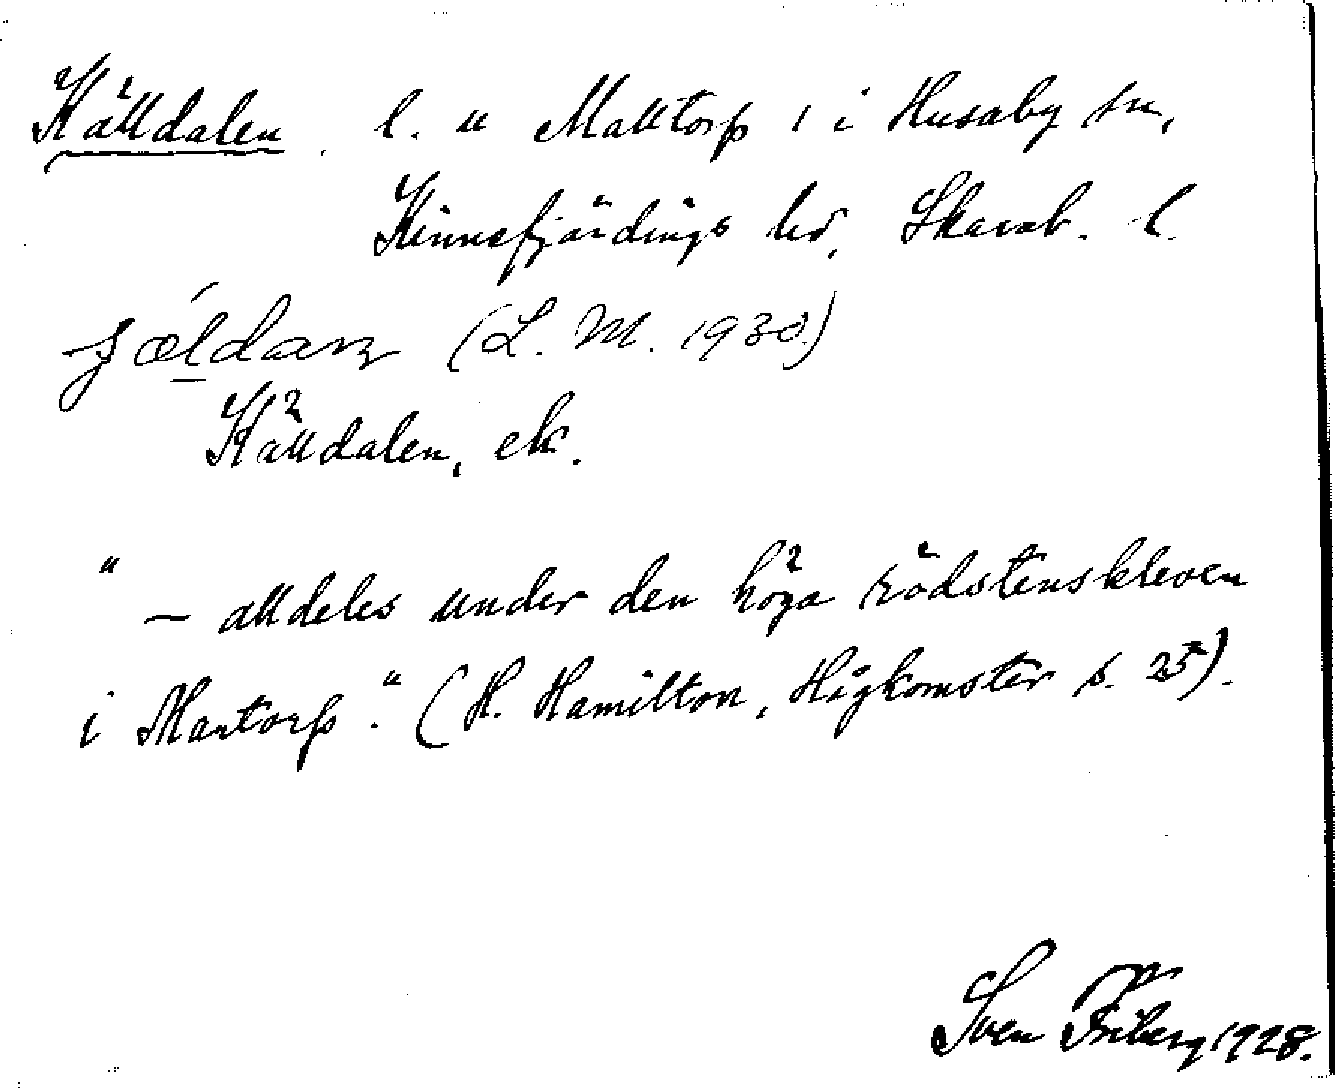 Källdalen, l. u Malltorp 1 i Husaby sn,
Kinnefjärdings hd, Skarab. l.
(L. M. 1930)
Källdalen, ek.
" – alldeles under den höga rödstenskleven
i Martorp." (H. Hamilton, Hågkomster s. 25).
Sven Friberg 1928.